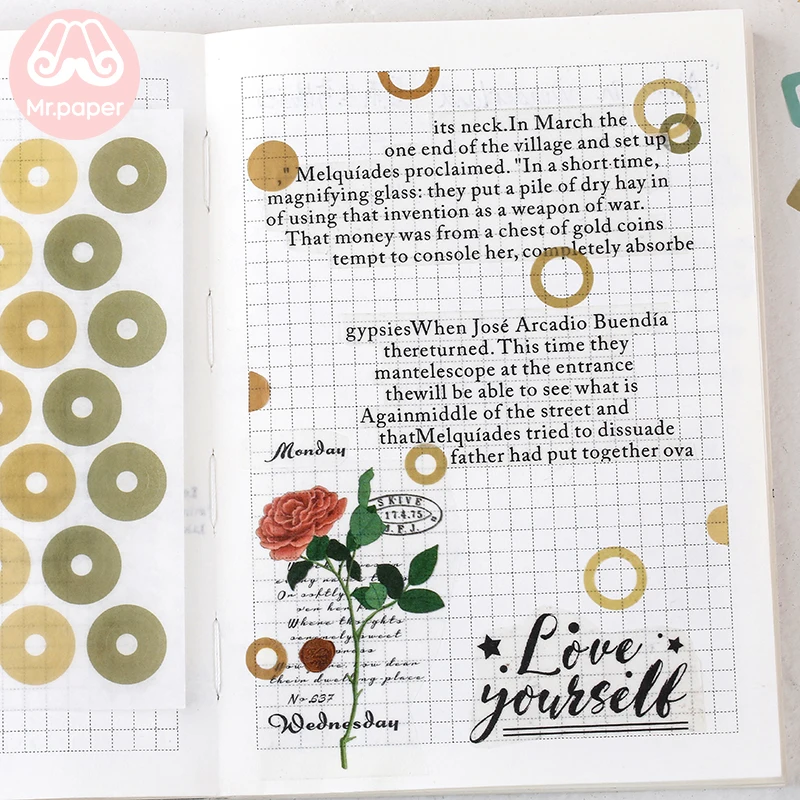 Mr.paper
its neck.In March the
one end of the village and set up
," Melquíades proclaimed. "In a short time,
magnifying glass: they put a pile of dry hay in
of using that invention as a weapon of war.
That money was from a chest of gold coins
tempt to console her, completely absorbe
gypsiesWhen José Arcadio Buendía
thereturned. This time they
mantelescope at the entrance
thewill be able to see what is
Againmiddle of the street and
thatMelquíades tried to dissuade
father had put together ova
Monday
SKIVE
17.4.75
J.F.J.
Or softly
Where thoughts
serenely sweet
press
you dear
their dwelling place
No 637
Wednesday
Love
yourself